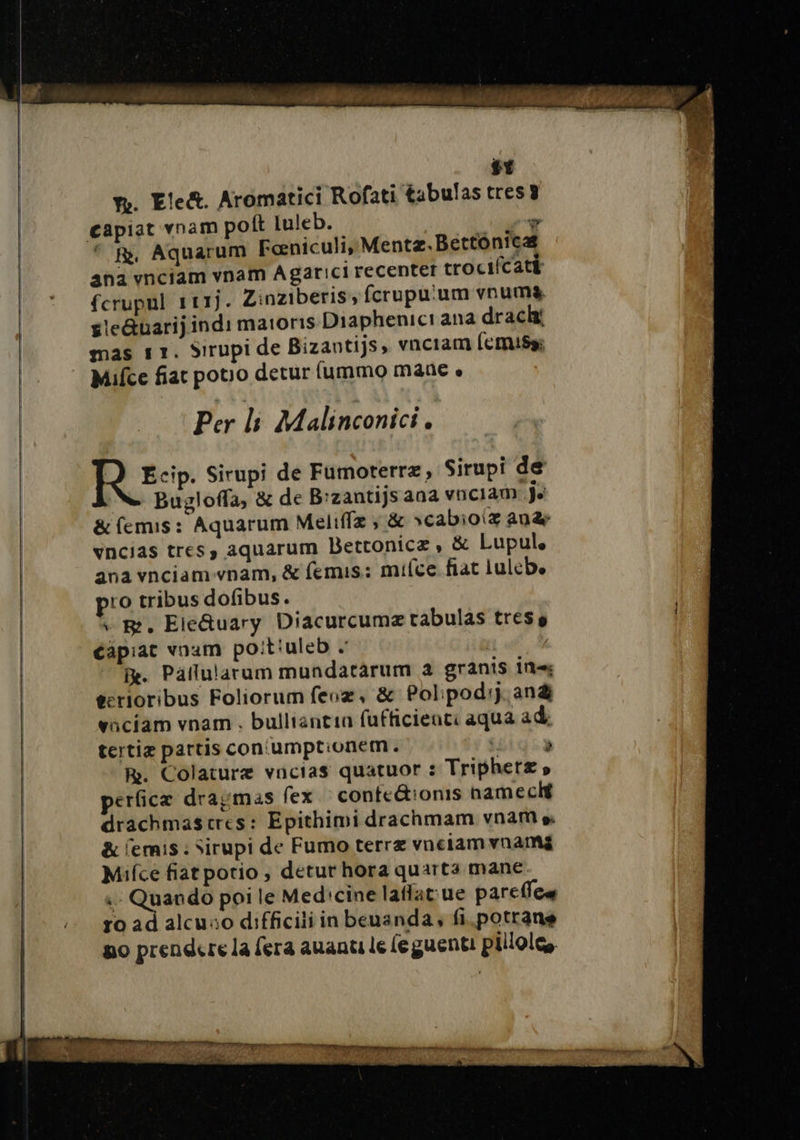 ℞. Elect. Aromatici Roſati tabulas tres
capiat vnam poſt Iuleb.
℞. Aquarum Fœniculi, Mentæ. Bettonicæ
ana vnciam vnam Agarici recenter trociſcati
ſcrupul iiij. Zinziberis, ſcrupulum vnum.
electuarij indi maioris Diaphenici ana drach
mas ii. Sirupi de Bizantijs, vnciam ſemiſs.
Miſce fiat potio detur ſummo mane.
Per li Malinconici.
REcip. Sirupi de Fumoterræ, Sirupi de
Bugloſſa, & de Bizantijs ana vnciam j.
& ſemis: Aquarum Meliſſæ, & ſcabioſæ ana
vncias tres, aquarum Bettonicæ, & Lupul.
ana vnciam vnam, & ſemis: miſce fiat Iuleb.
pro tribus doſibus.
℞. Electuary Diacurcumæ tabulas tres,
capiat vnam poſt iuleb.
℞. Paſſularum mundatarum a granis in-
terioribus Foliorum ſenæ, & Polipodij, ana
vnciam vnam. bulliantin ſufficienti aqua ad
tertiæ partis conſumptionem.
℞. Colaturæ vncias quatuor: Tripheræ,
perſicæ dragmas ſex confectionis hamech
drachmas tres: Epithimi drachmam vnam
& ſemis. Sirupi de Fumo terræ vnciam vnam
Miſce fiat potio, detur hora quarta mane.
Quando poi le Medicine laſſatiue pareſſe
ro ad alcuno difficili in beuanda, ſi potrano
no prendere la ſera auanti le ſeguenti pillole,